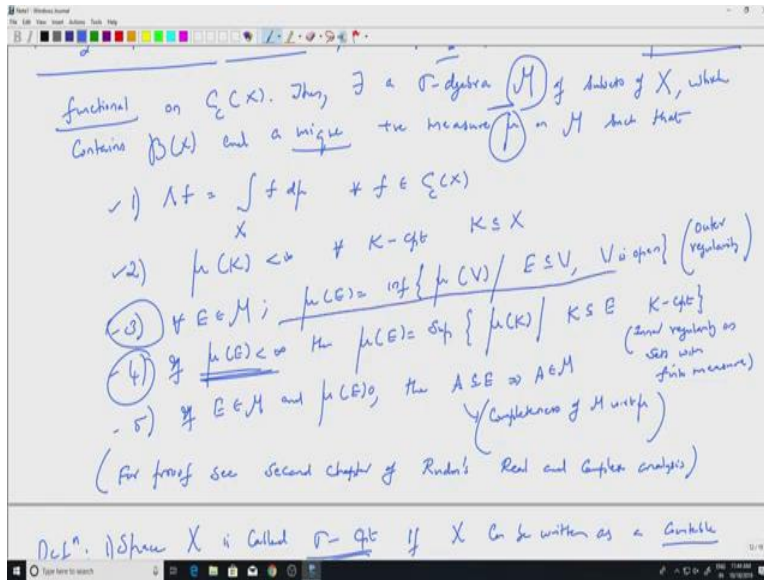 Note1 - Windows Journal
File Edit View Insert Actions Tools Help
functional on C_c(X). Then, ∃ a σ-algebra M of subsets of X, which
Contains B(X) and a unique +ve measure μ on M such that
1) Λf = ∫_X f dμ ∀ f ∈ C_c(X)
2) μ(K) < ∞ ∀ K-cpt K ⊆ X
3) ∀ E ∈ M; μ(E) = inf { μ(V) / E ⊆ V, V is open } (Outer regularity)
4) If μ(E) < ∞ then μ(E) = Sup { μ(K) / K ⊆ E K-cpt }
(Inner regularity on sets with finite measure)
5) If E ∈ M and μ(E)=0, then A ⊆ E ⇒ A ∈ M
(Completeness of M w.r.t μ)
(For proof see second chapter of Rudin's Real and Complex analysis)
Defn. 1) Space X is Called σ-cpt if X Can be written as a Countable
Type here to search